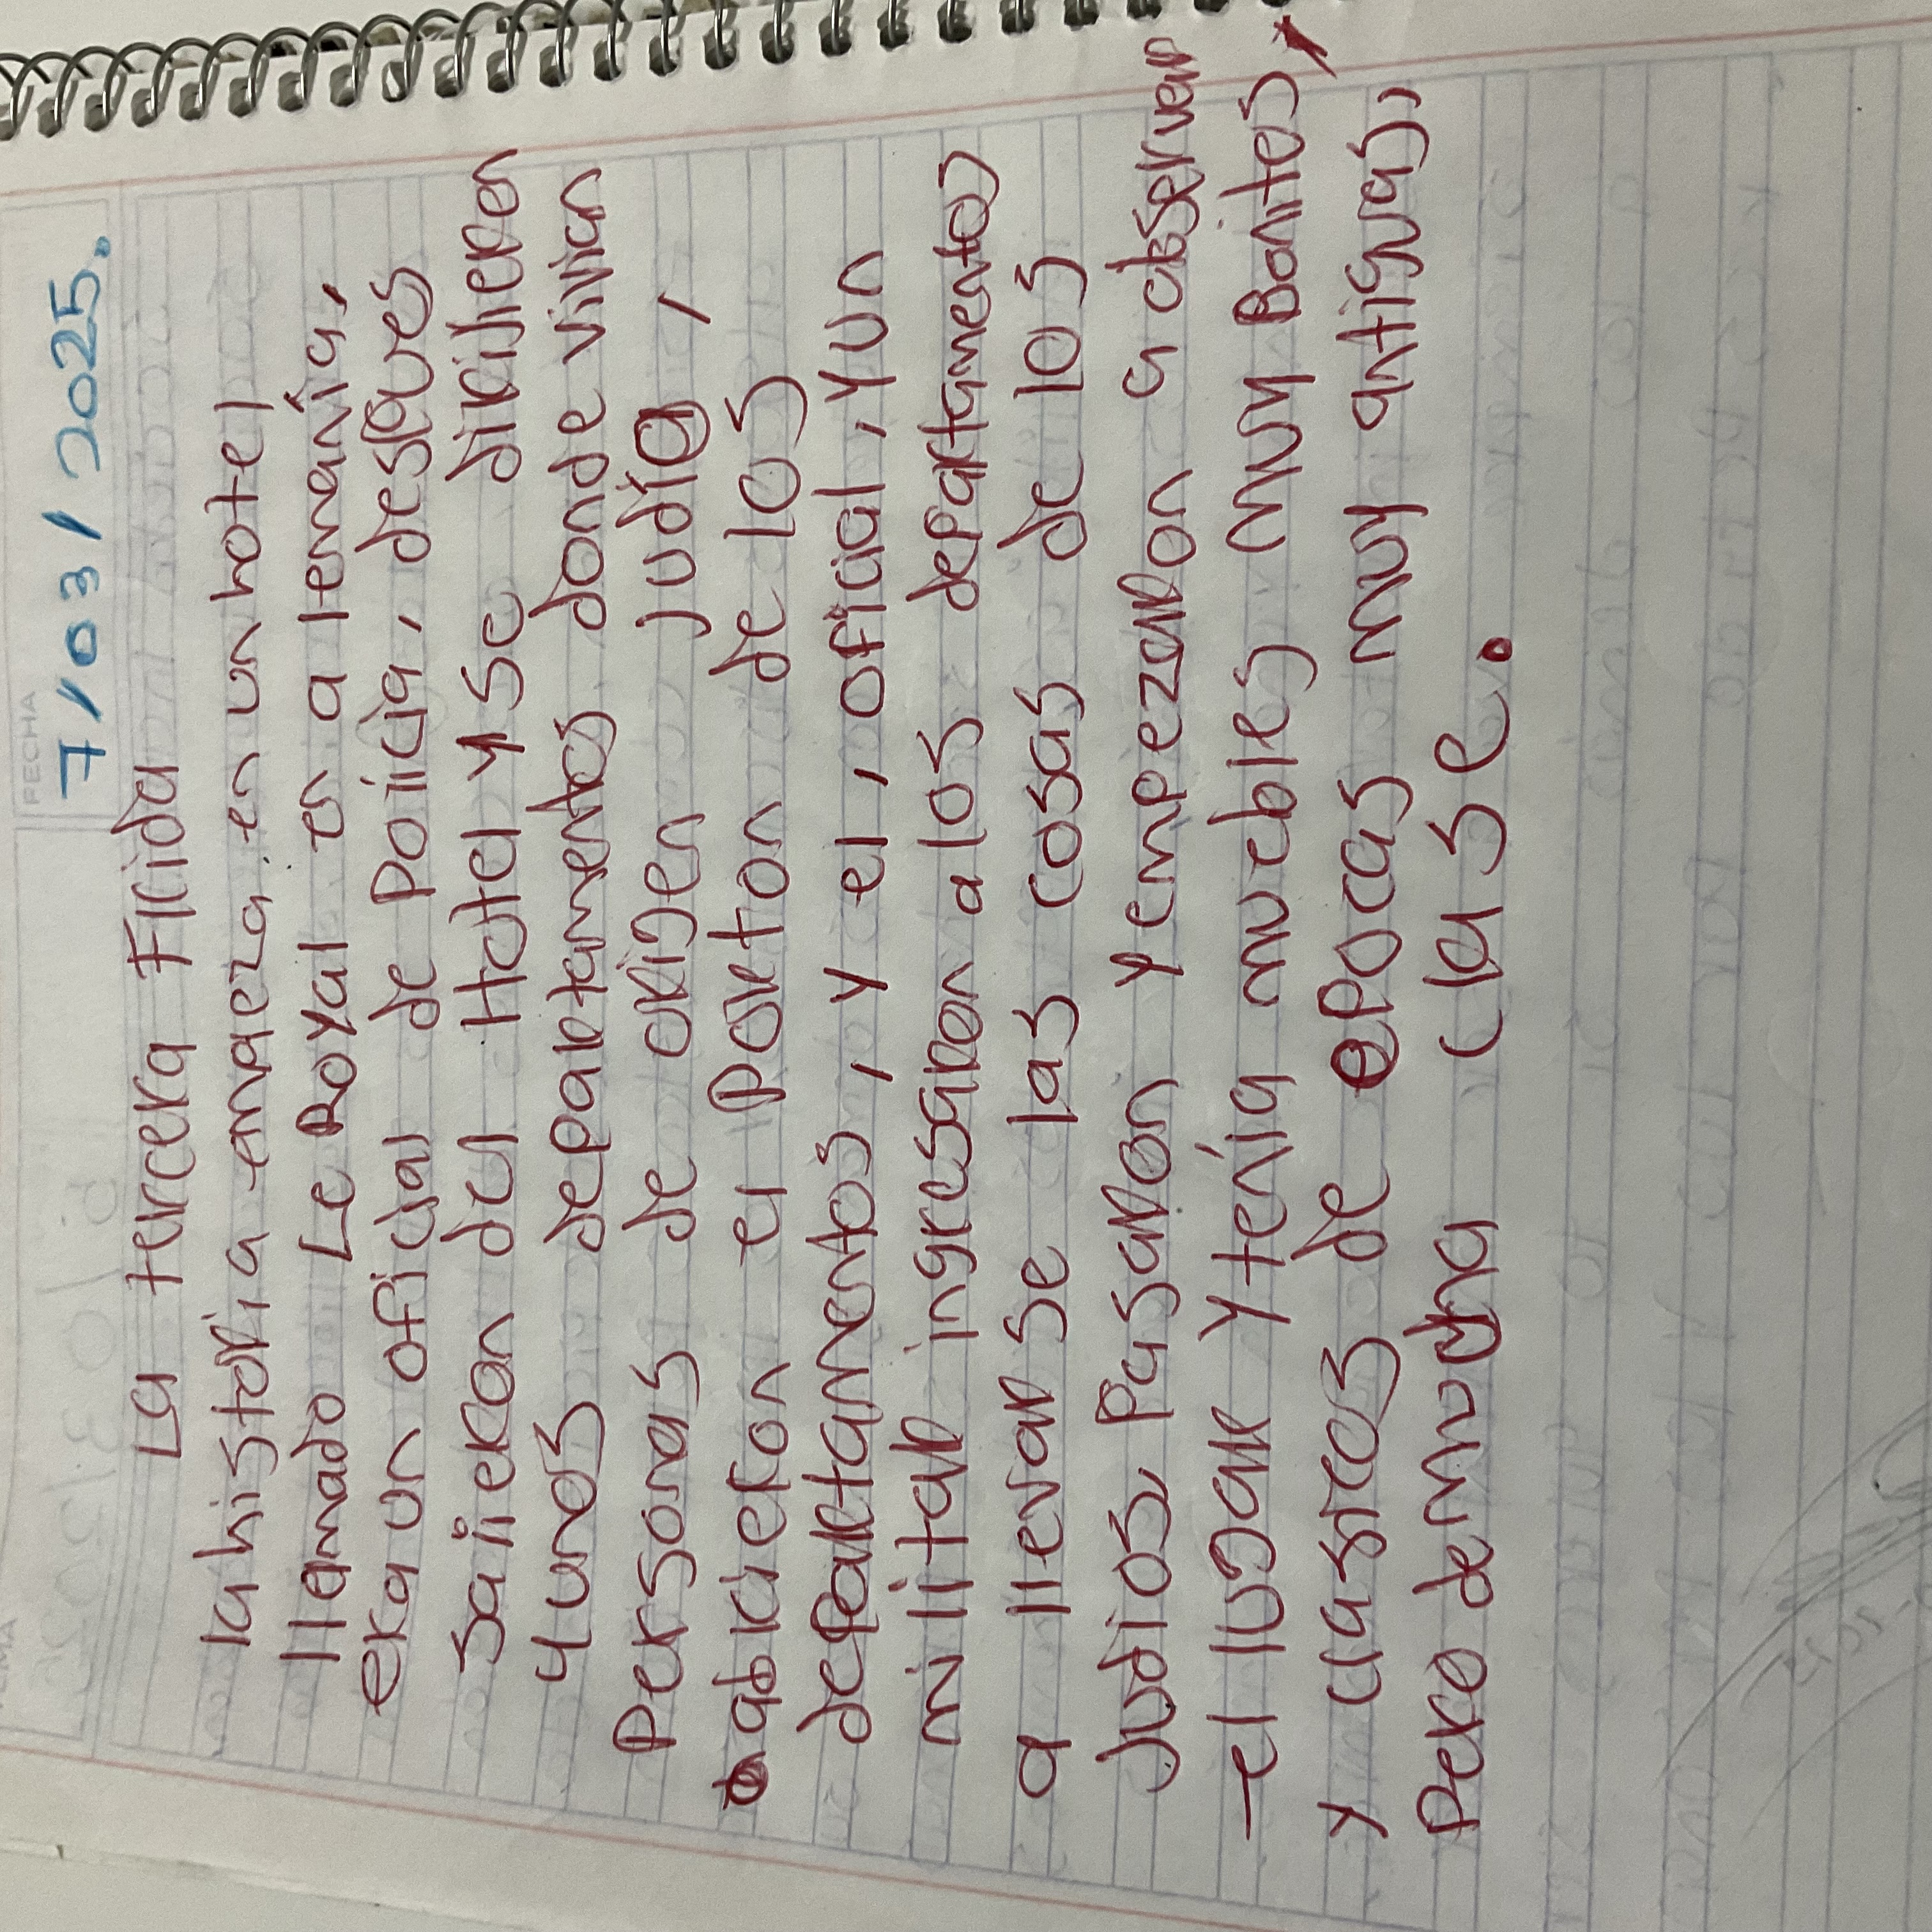 FECHA
7/03/2025.
La tercera Flida
la historia empieza en un hotel
llamado Le Royal en a lemanía,
era un oficial de Policia, despues
salieron del Hotel y se dirijieron
y unos departamentos donde vivian
Personas de orijen judía,
abrieron el Porton de los
departamentos, y el, oficial, y un
militar ingresaron a los departamentos
a llevarse las cosas de los
Judios, Pasaron y empezaron a observar
el lugar y tenía muebles muy Bonitos,
y clasicos de epocas muy antiguas,
Pero de mucha clase.